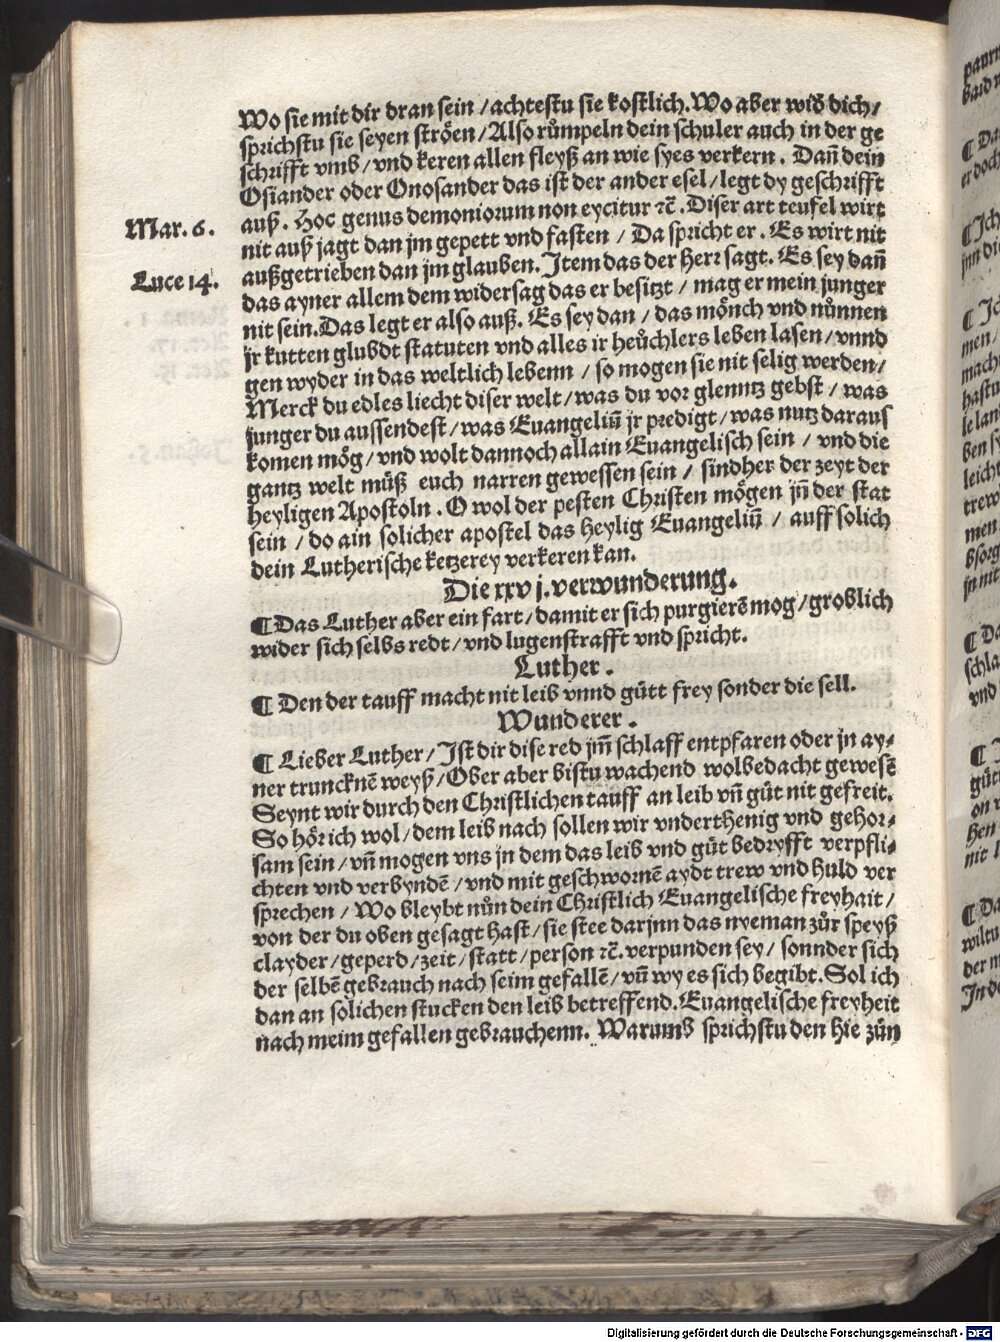 Wo sie mit dir dran sein / achtestu sie kostlich. Wo aber wid̄ dich /
sprichstu sie seyen ströen / Also růmpeln dein schuler auch in der ge
schrifft vmb / vnd keren allen fleyß an wie syes verkern . Dañ dein
Osiander oder Onosander das ist der ander esel / legt dy geschrifft
auß . Hoc genus demoniorum non eycitur ⁊c̃ . Diser art teufel wirt
nit auß jagt dan jm gepett vnd fasten / Da spricht er . Es wirt nit
außgetrieben dan jm glauben. Item das der Herr sagt. Es sey dañ
das ayner allem dem widersag das er besitzt / mag er mein junger
nit sein. Das legt er also auß. Es sey dan / das mönch vnd nůnnen
jr kutten glubdt statuten vnd alles ir heůchlers leben lasen / vnnd
gen wyder in das weltlich lebenn / so mogen sie nit selig werden /
Merck du edles liecht diser welt / was du vor glenntz gebst / was
junger du aussendest / was Euangeliũ jr predigt / was nutz daraus
komen mög / vnd wolt dannoch allain Euangelisch sein / vnd die
gantz welt můß euch narren gewessen sein / sindher der zeyt der
heyligen Apostoln . O wol der pesten Christen mögen jñ der stat
sein / do ain solicher apostel das heylig Euangeliũ / auff solich
dein Lutherische ketzerey verkeren kan.
Mar. 6.
Luce 14.
Die xxvj. verwunderung.
¶ Das Luther aber ein fart / damit er sich purgierẽ mog / groblich
wider sich selbs redt / vnd lugenstrafft vnd spricht.
Luther.
¶ Den der tauff macht nit leib vnnd gůtt frey sonder die sell.
Wunderer.
¶ Lieber Luther / Ist dir dise red jm̃ schlaff entpfaren oder jn ay⸗
ner truncknẽ weyß / Ober aber bistu wachend wolbedacht gewesẽ
Seynt wir durch den Christlichen tauff an leib vñ gůt nit gefreit.
So hör ich wol / dem leib nach sollen wir vnderthenig vnd gehor⸗
sam sein / vñ mogen vns jn dem das leib vnd gůt bedryfft verpfli⸗
chten vnd verbyndẽ / vnd mit geschwornẽ aydt trew vnd huld ver
sprechen / Wo bleybt nůn dein Christlich Euangelische freyhait /
von der du oben gesagt hast / sie stee darjnn das nyeman zůr speyß
clayder / geperd / zeit / statt / person ⁊c̃. verpunden sey / sonnder sich
der selbẽ gebrauch nach seim gefallẽ / vñ wy es sich begibt. Sol ich
dan an solichen stucken den leib betreffend. Euangelische freyheit
nach meim gefallen gebrauchenn. Warumb sprichstu den hie zůn
Digitalisierung gefördert durch die Deutsche Forschungsgemeinschaft - DFG